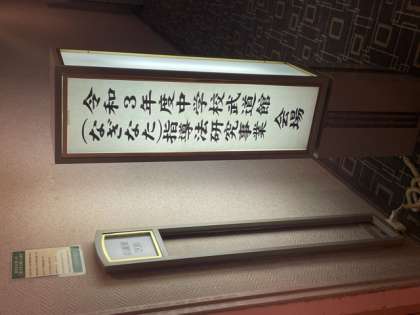 令和3年度中学校武道館
(なぎなた)指導法研究事業
会場